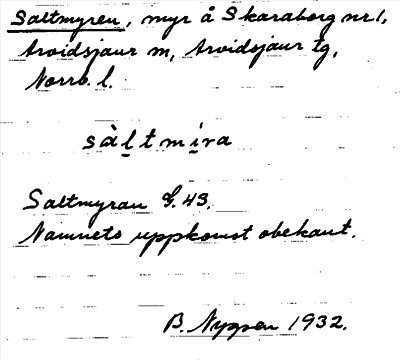 Saltmyren, myr å Skaraborg nr 1,
Arvidsjaur m, Arvidsjaur tg,
Norrb. l.
sàl̲t mi̲ra
Saltmyran G. 43.
Namnets uppkomst obekant.
B. Nygren 1932.